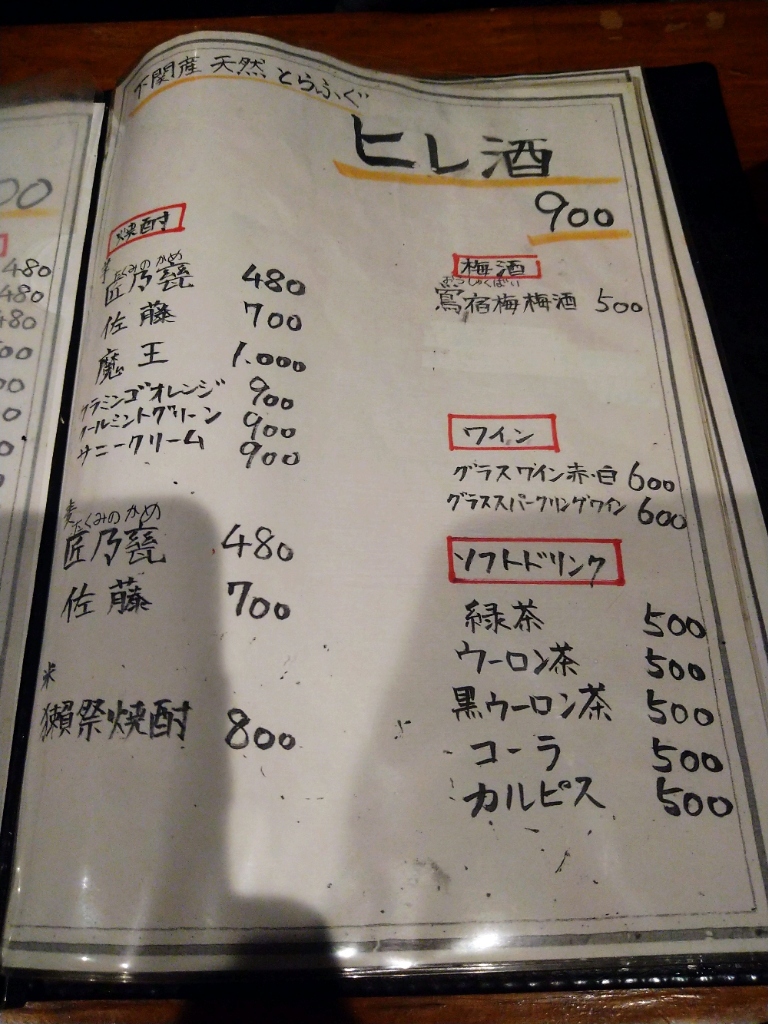 下関産 天然 とらふぐ
ヒレ酒
900
焼酎
たくみのかめ
匠乃甕 480
佐藤 700
魔王 1.000
フラミンゴオレンジ 900
クールミントグリーン 900
サニークリーム 900
麦
たくみのかめ
匠乃甕 480
佐藤 700
米
獺祭焼酎 800
梅酒
おうしゅくばい
鶯宿梅梅酒 500
ワイン
グラスワイン赤・白 600
グラススパークリングワイン 600
ソフトドリンク
緑茶 500
ウーロン茶 500
黒ウーロン茶 500
コーラ 500
カルピス 500
00
480
480
480